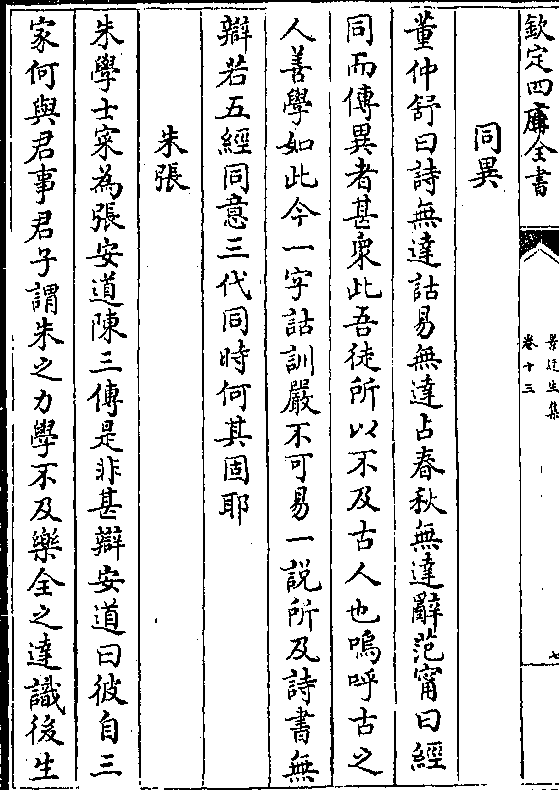 欽定四庫全書
景迂生集
卷十三
七
同異
董仲舒曰詩無達詁易無達占春秋無達辭范甯曰經
同而傳異者甚衆此吾徒所以不及古人也嗚呼古之
人善學如此今一字詁訓嚴不可易一說所及詩書無
辯若五經同意三代同時何其固耶
朱張
朱學士寀為張安道陳三傳是非甚辯安道曰彼自三
家何與君事君子謂朱之力學不及樂全之達識後生